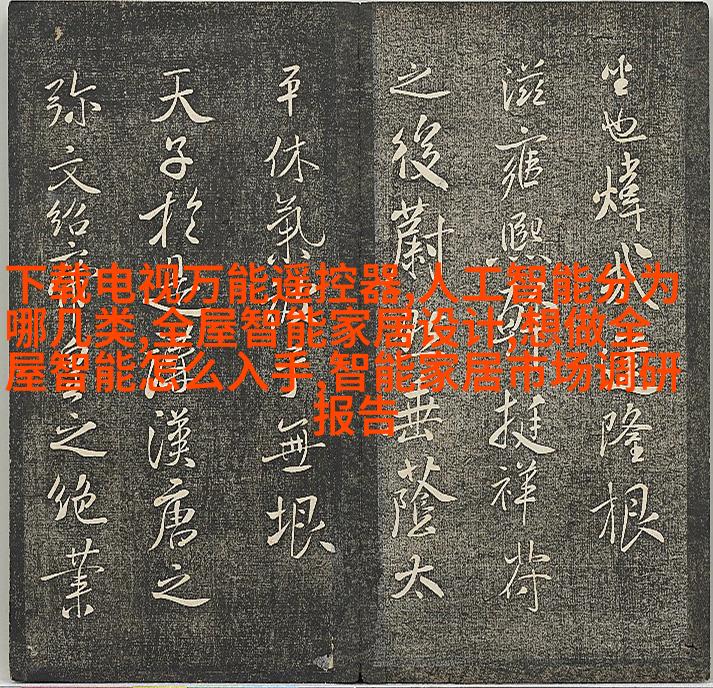 下载电视万能遥控器,人工智能分为
哪几类,全屋智能家居设计,想做全
屋智能怎么入手,智能家居市场调研
报告
也煒隆根
滋雍熙挺祥符
之後蔚垂蔭太
平休氣無垠
天子於是漢唐之
弥文紹之絶業